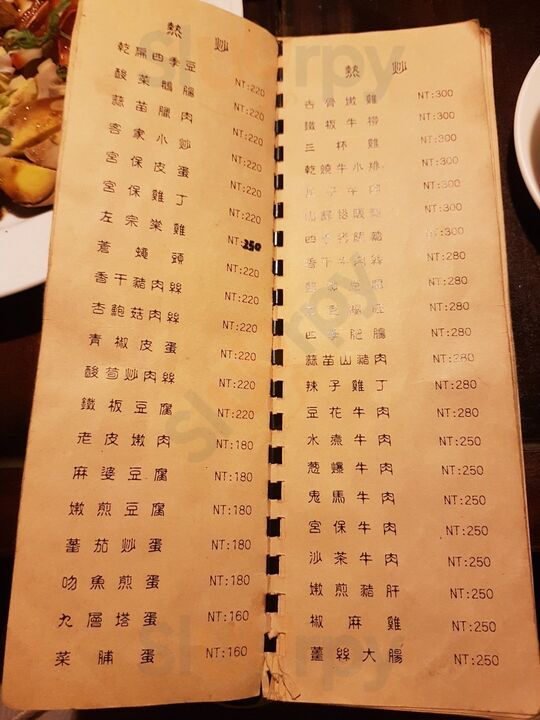 熱 炒
乾扁四季豆 NT:220
酸菜鵝腸 NT:220
蒜苗臘肉 NT:220
客家小炒 NT:220
宮保皮蛋 NT:220
宮保雞丁 NT:220
左宗棠雞 NT:250
蒼蠅頭 NT:220
香干豬肉絲 NT:220
杏鮑菇肉絲 NT:220
青椒皮蛋 NT:220
酸荀炒肉絲 NT:220
鐵板豆腐 NT:220
老皮嫩肉 NT:180
麻婆豆腐 NT:180
嫩煎豆腐 NT:180
蕃茄炒蛋 NT:180
吻魚煎蛋 NT:180
九層塔蛋 NT:160
菜脯蛋 NT:160
熱 炒
去骨嫩雞 NT:300
鐵板牛柳 NT:300
三杯雞 NT:300
乾燒牛小排 NT:300
牛肉 NT:300
NT:300
四季 NT:300
香干牛肉絲 NT:280
NT:280
NT:280
四季肥腸 NT:280
蒜苗山豬肉 NT:280
辣子雞丁 NT:280
豆花牛肉 NT:280
水煮牛肉 NT:250
葱爆牛肉 NT:250
鬼馬牛肉 NT:250
宮保牛肉 NT:250
沙茶牛肉 NT:250
嫩煎豬肝 NT:250
椒麻雞 NT:250
薑絲大腸 NT:250